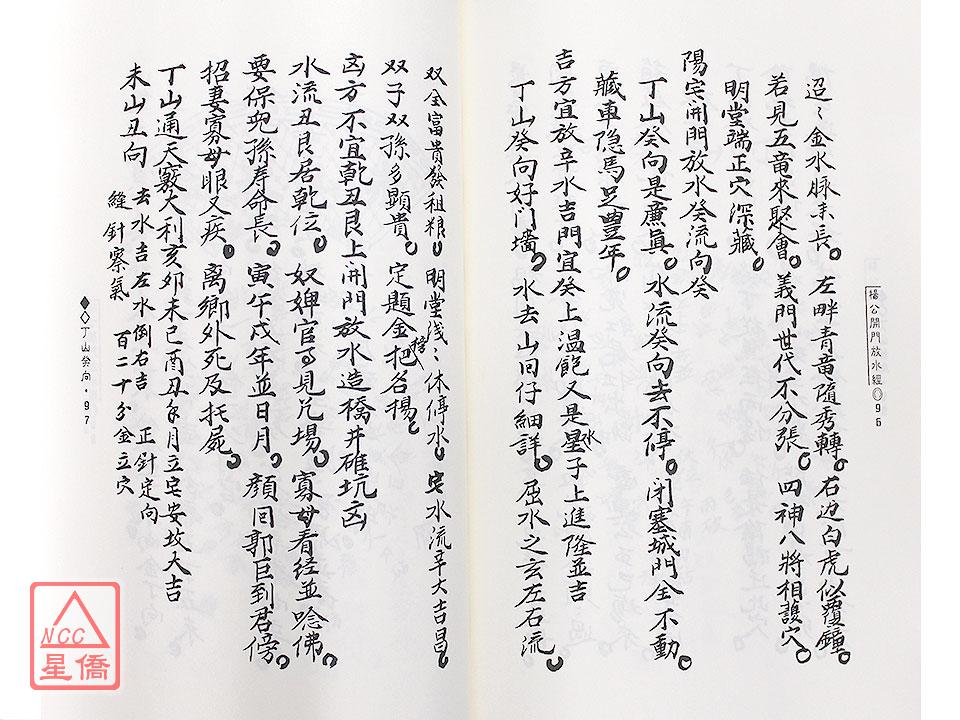 迢〻金水脉來長。左畔青竜隨秀轉。右边白虎似覆鐘。
若見五竜來聚會。義門世代不分張。四神八將相謨穴。
明堂端正穴深藏。
陽宅開門放水癸流向癸
丁山癸向是廉真。水流癸向去不停。閉塞城門全不動。
藏車隐馬足豊年。
吉方宜放辛水吉門宜癸上温飽又是星水子上進隆並吉
丁山癸向好门墻。水去山囙仔細詳。屈水之玄左右流。
双全富貴發租粮。明堂浅〻休停水。宅水流辛大吉昌。
双子双孫多顕貴。定題金把名楊。
榜
凶方不宜乾丑艮上開門放水造橋井碓坑凶
水流丑艮居乾位。奴婢官司見兊場。寡母看经並唸佛。
要保兒孫寿命長。寅午戍年並日月。顔囙郭巨到君傍。
招妻寡母眼又疾。离鄉外死及扥屍。
丁山通天竅大利亥夘未巳酉丑年月立宅安坟大吉
未山丑向 去水吉左水倒右吉 正针定向
縫針察氣 百二十分金立穴
楊公開門放水經 96
丁山癸向·97
NCC
星僑